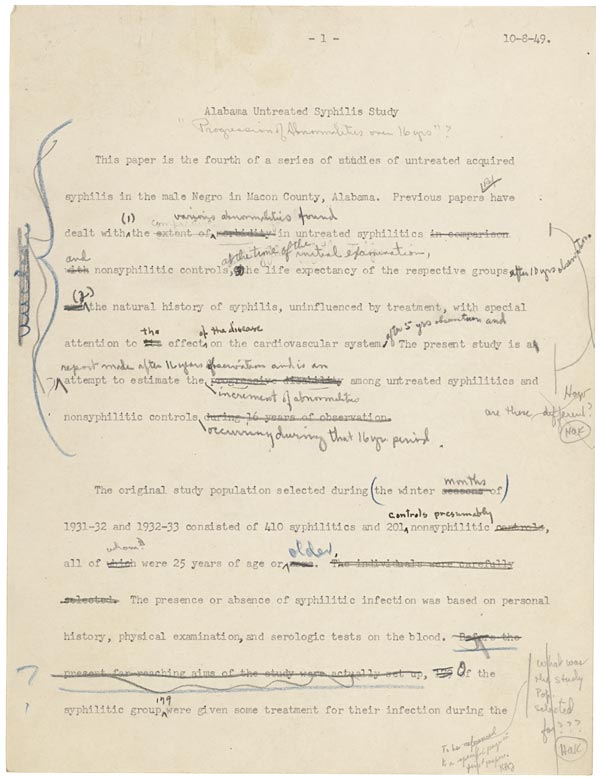 - 1 -
10-8-49.
Alabama Untreated Syphilis Study
"Progression of Abnormalities over 16 yrs"?
This paper is the fourth of a series of studies of untreated acquired
syphilis in the male Negro in Macon County, Alabama. Previous papers have
(1) various abnormalities found
dealt with the extent of morbidity in untreated syphilitics in comparison
and at the time of the initial examination,
with nonsyphilitic controls, the life expectancy of the respective groups after 10 yrs observation.
(2)
the natural history of syphilis, uninfluenced by treatment, with special
the of the disease after 5 yrs observation and
attention to effect on the cardiovascular system. The present study is a
report made after 16 years observation and is an
attempt to estimate the progressive disability among untreated syphilitics and
increment of abnormalities
nonsyphilitic controls during 16 years of observation.
occurring during that 16 yr period.
How
are these different?
HaK
months
The original study population selected during (the winter seasons of)
controls presumably
1931-32 and 1932-33 consisted of 410 syphilitics and 201 nonsyphilitic controls,
whom? older,
all of which were 25 years of age or more. The individuals were carefully
selected. The presence or absence of syphilitic infection was based on personal
history, physical examination, and serologic tests on the blood. Before the
present far-reaching aims of the study were actually set up, Of the
179
syphilitic group were given some treatment for their infection during the
?
What was
the study
Pop.
selected
for???
HaK
To be referenced
to a specific page in
first paper.